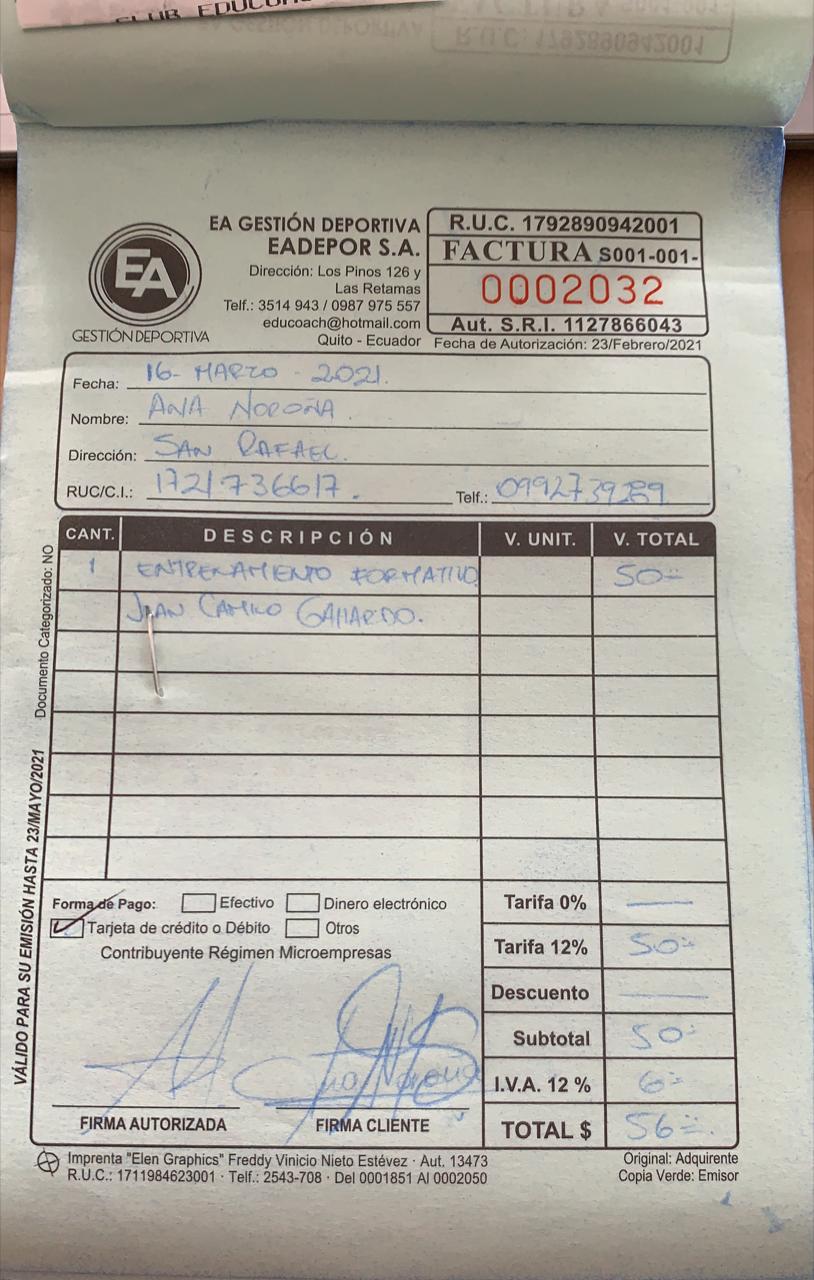 CLUB EDUCO
R.U.C: 1792890942001
EA
GESTIÓN DEPORTIVA
EA GESTIÓN DEPORTIVA
EADEPOR S.A.
Dirección: Los Pinos 126 y
Las Retamas
Telf.: 3514 943 / 0987 975 557
educoach@hotmail.com
Quito - Ecuador
R.U.C. 1792890942001
FACTURA S001-001-
0002032
Aut. S.R.I. 1127866043
Fecha de Autorización: 23/Febrero/2021
Fecha: 16- MARZO - 2021.
Nombre: ANA NOROÑA.
Dirección: SAN RAFAEL.
RUC/C.I.: 1721736617. Telf.: 0992739289
CANT. DESCRIPCIÓN V. UNIT. V. TOTAL
1 ENTRENAMIENTO FORMATIVO 50=
JUAN CAMILO GALLARDO.
Documento Categorizado: NO
VÁLIDO PARA SU EMISIÓN HASTA 23/MAYO/2021
Forma de Pago: Efectivo Dinero electrónico
Tarjeta de crédito o Débito Otros
Contribuyente Régimen Microempresas
Tarifa 0% —
Tarifa 12% 50=
Descuento —
Subtotal 50=
I.V.A. 12 % 6=
TOTAL $ 56=.
Ana Noroña
FIRMA AUTORIZADA FIRMA CLIENTE
Imprenta "Elen Graphics" Freddy Vinicio Nieto Estévez · Aut. 13473
R.U.C.: 1711984623001 · Telf.: 2543-708 · Del 0001851 Al 0002050
Original: Adquirente
Copia Verde: Emisor